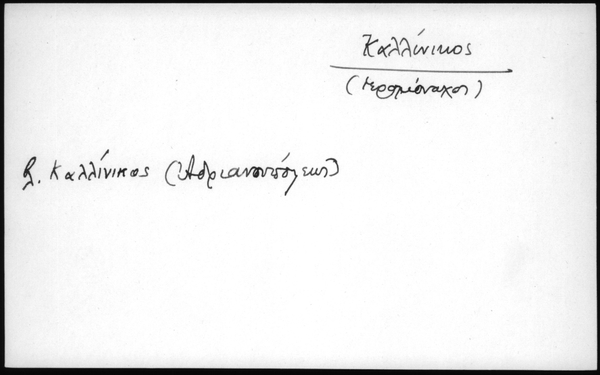 Καλλίνικος
(ιερομόναχος)
βλ. Καλλίνικος (Αδριανουπόλεως)